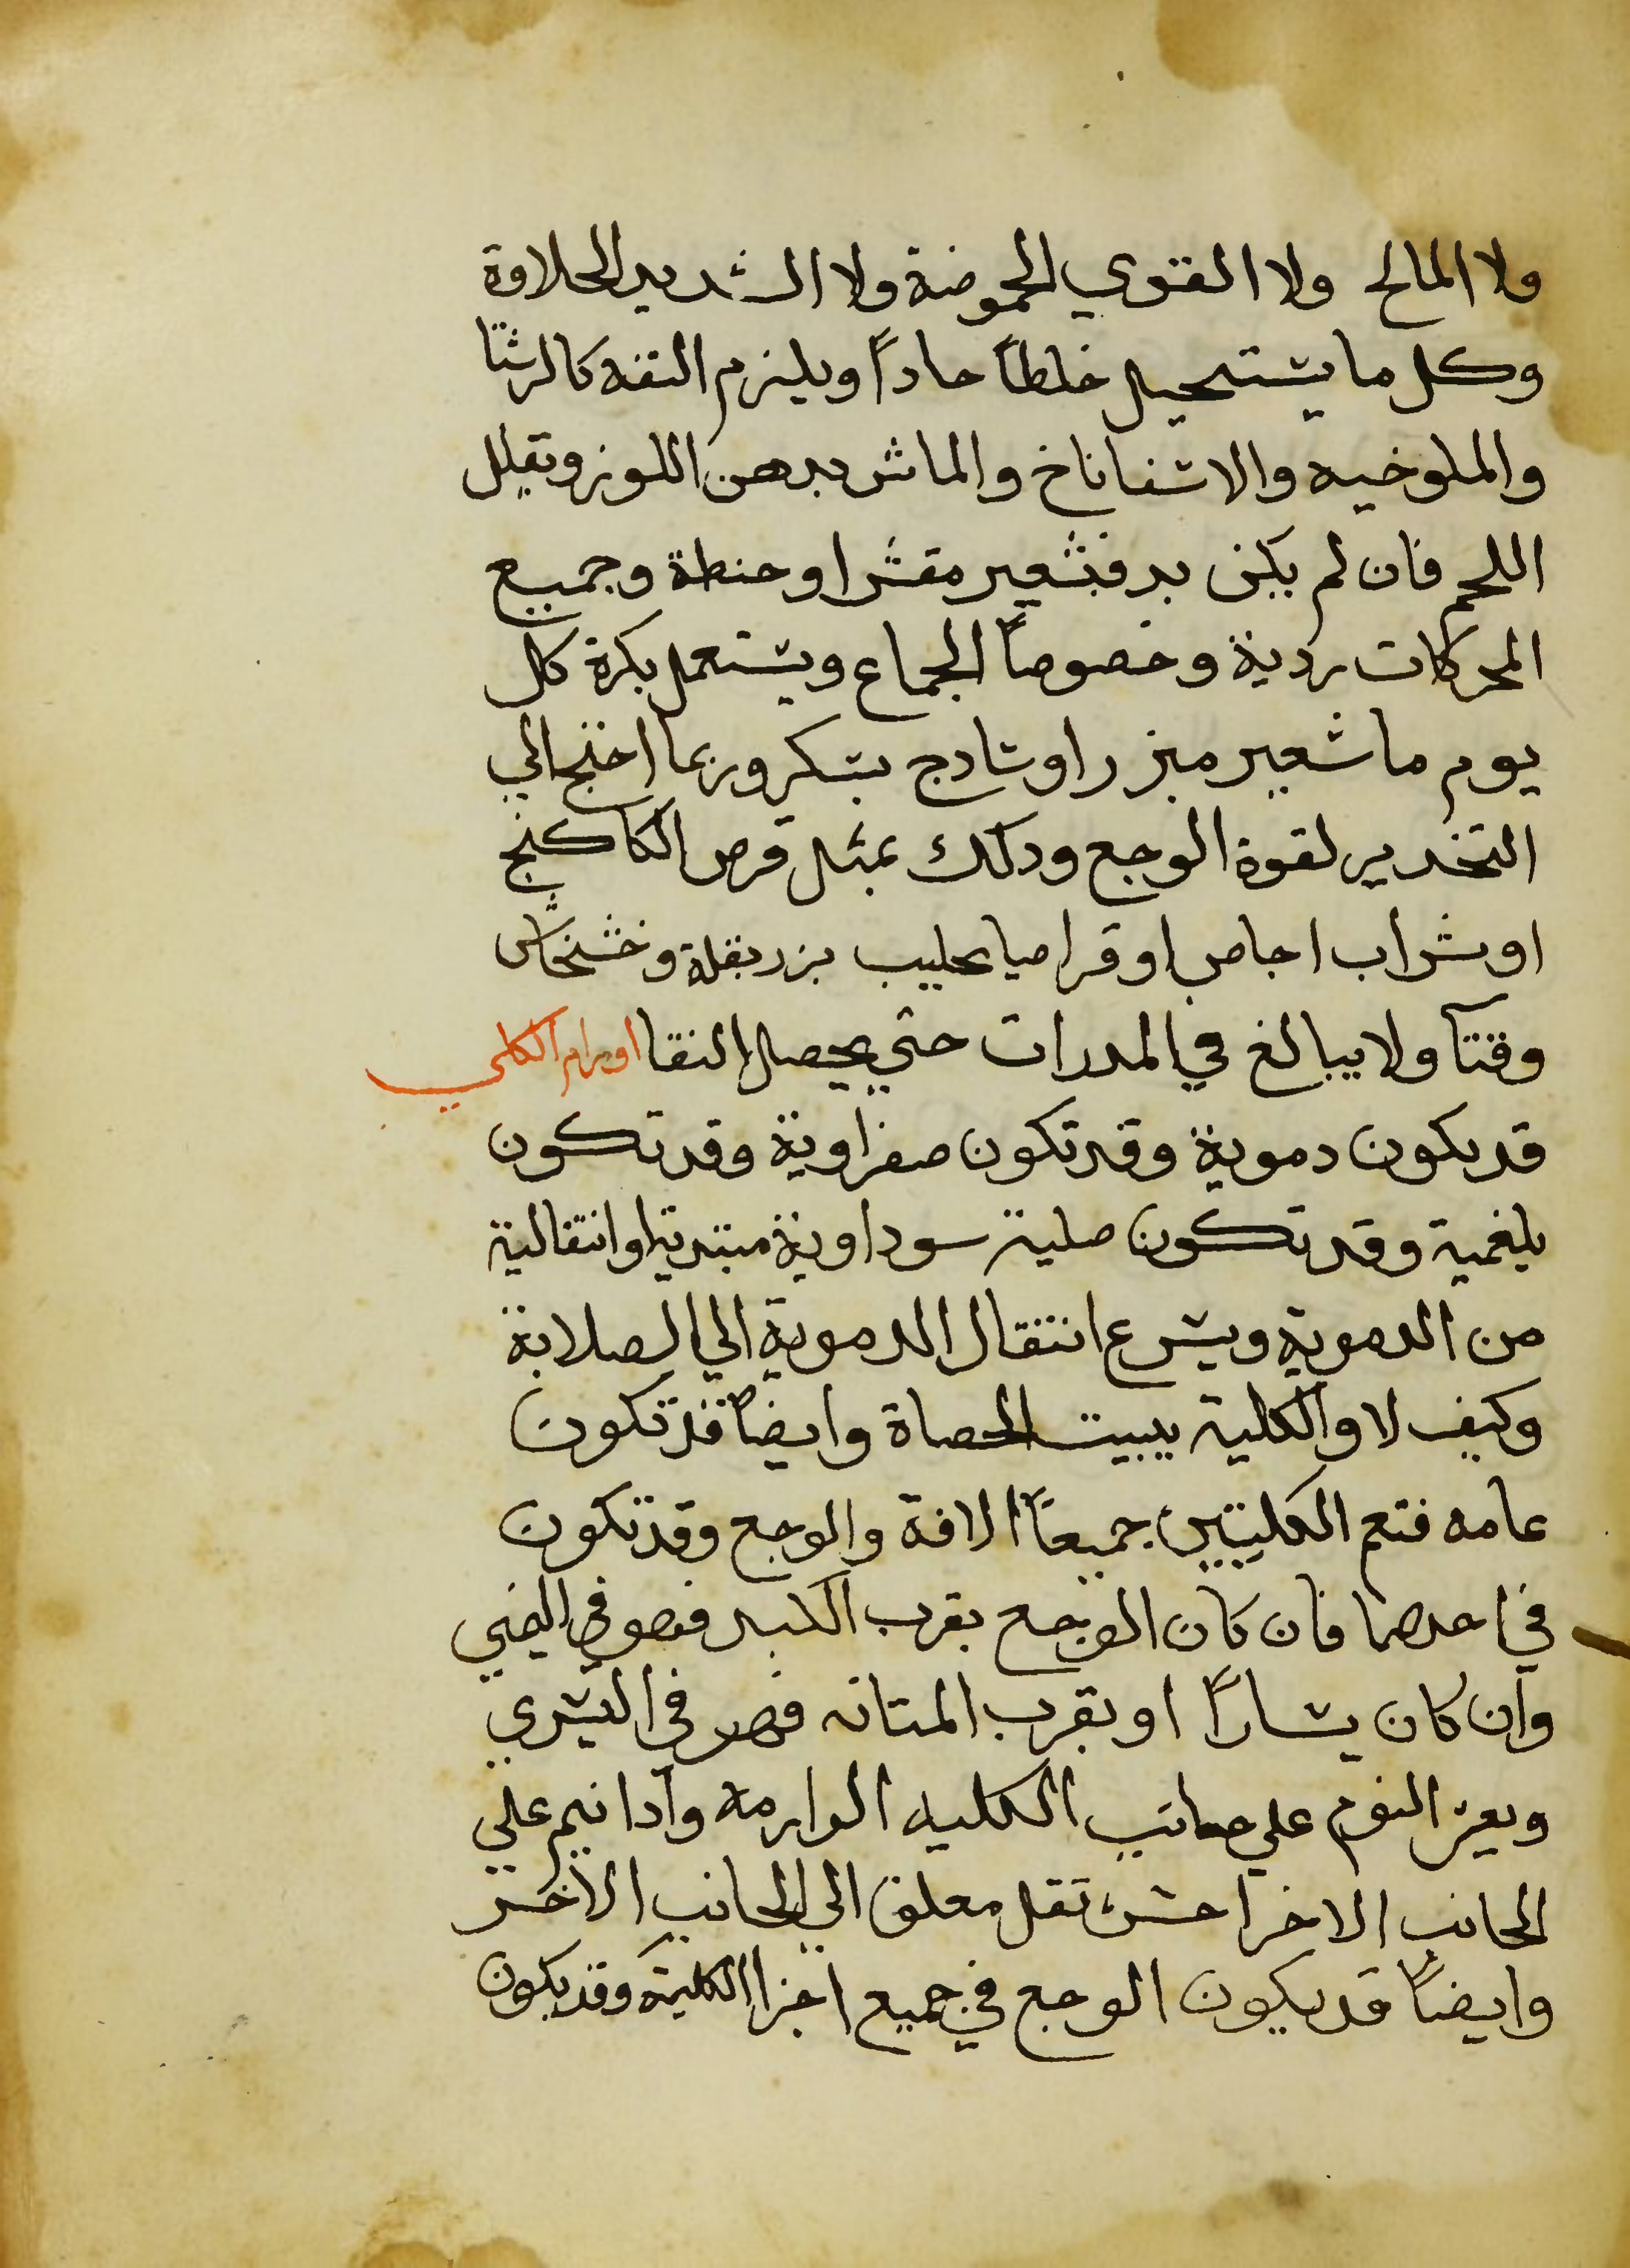 ولا المالح ولا القوي الحموضة ولا الشديد الحلاوة
وكل ما يستحيل خلطاً حاداً ويلزم التفه كالرشتا
والملوخيه والاسفاناخ والماش بدهن اللوز وتقليل
اللحم فان لم يكن بد فبشعير مقشر او حنطة وجميع
المحركات ردية وخصوصاً الجماع ويستعمل بكرة كل
يوم ما شعير مبزر او سادج بسكر وربما احتج الي
التخدير لقوة الوجع ودلك بمثل قرص الكاكنج
او شراب اجاص او قراصيا بحليب بزر بقلة وخشخاش
وقتاً ولا يبالغ في المدرات حتي يحصل النقا اورام الكلي
قد يكون دموية وقد تكون صفراوية وقد تكون
بلغمية وقد تكون صلبة سوداوية مبتدية او انتقالية
من الدموية ويسرع انتقال الدموية الي الصلابة
وكيف لا والكلية ببيت الحصاة وايضاً قد تكون
عامه فتعم الكليتين جميعاً الافة والوجع وقد تكون
في احدهما فان كان الوجع بقرب الكبد فهو في اليمني
وان كان يساراً او بقرب المتانه فهو في اليسري
ويعز النوم علي جانب الكليه الوارمة وادا نيم علي
الجانب الاخر احس بتقل معلق الي الجانب الاخر
وايضاً قد يكون الوجع في جميع اجزا الكلية وقد يكون